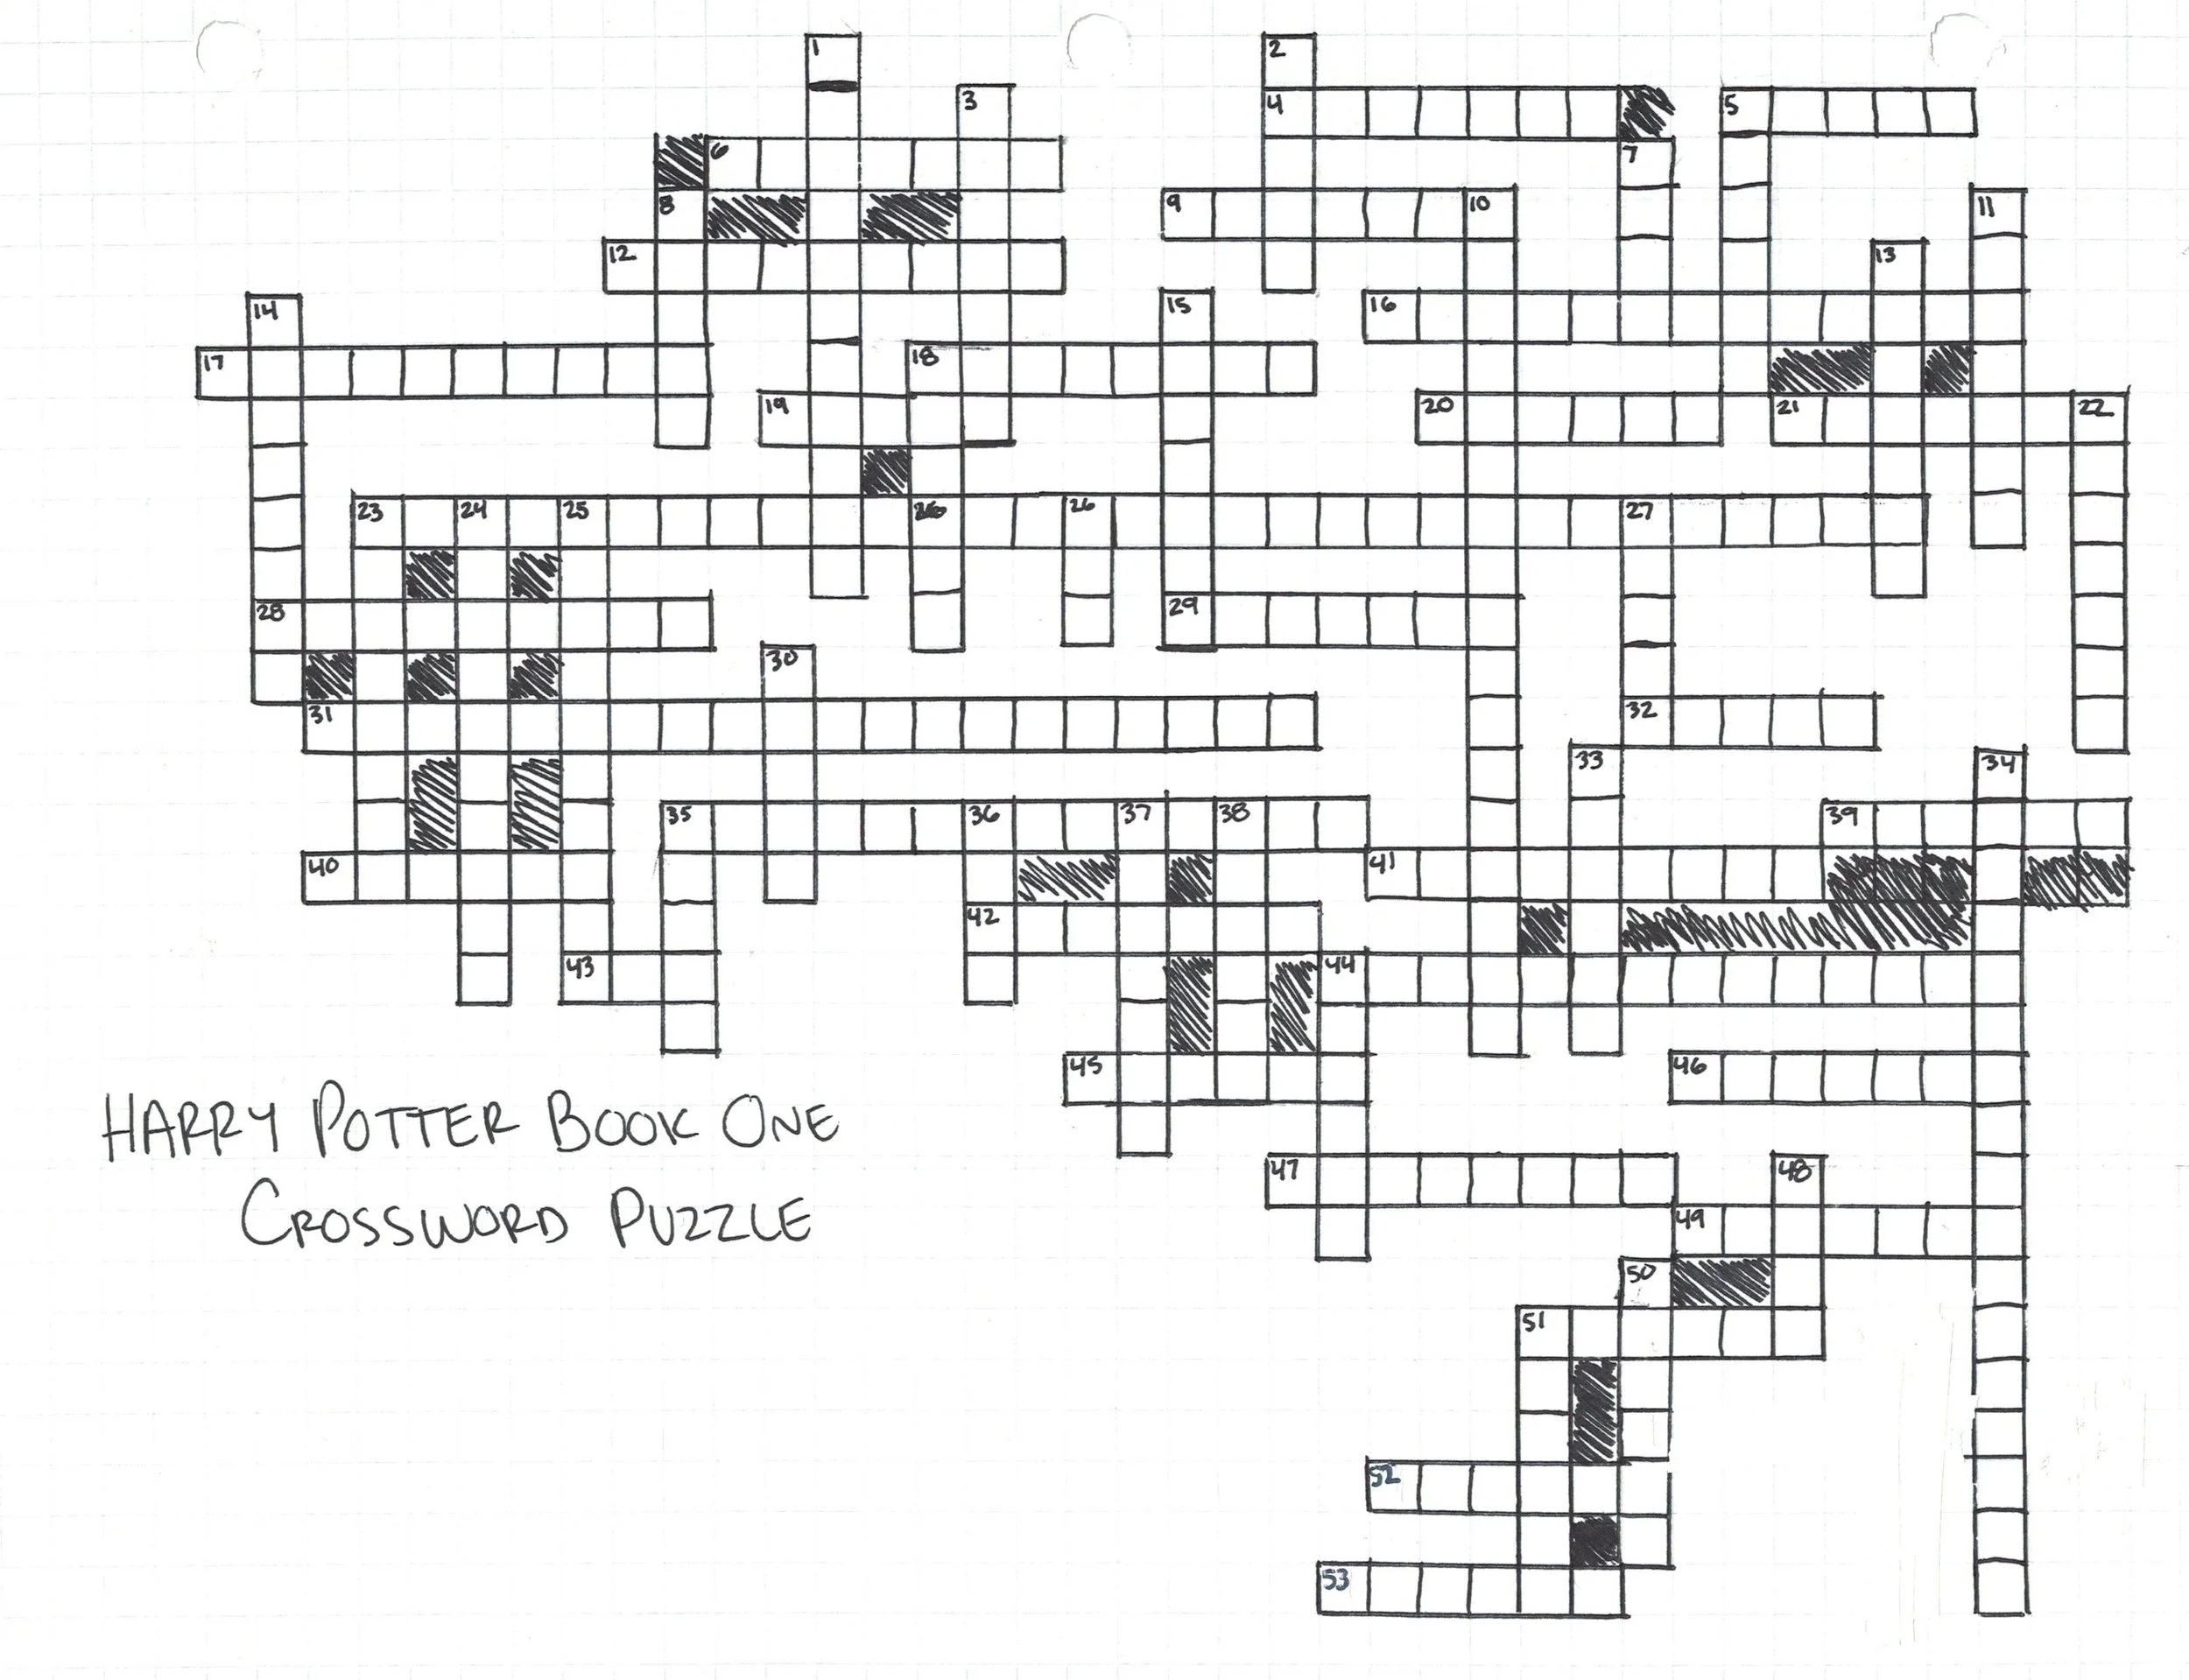 1 2
3 4 5
6 7
8 9 10 11
12 13
14 15 16
17 18
19 20 21 22
23 24 25 26 27
28 29
30
31 32
33 34
35 36 37 38 39
40 41
42
43 44
45 46
HARRY POTTER BOOK ONE
CROSSWORD PUZZLE
47 48
49
50
51
52
53